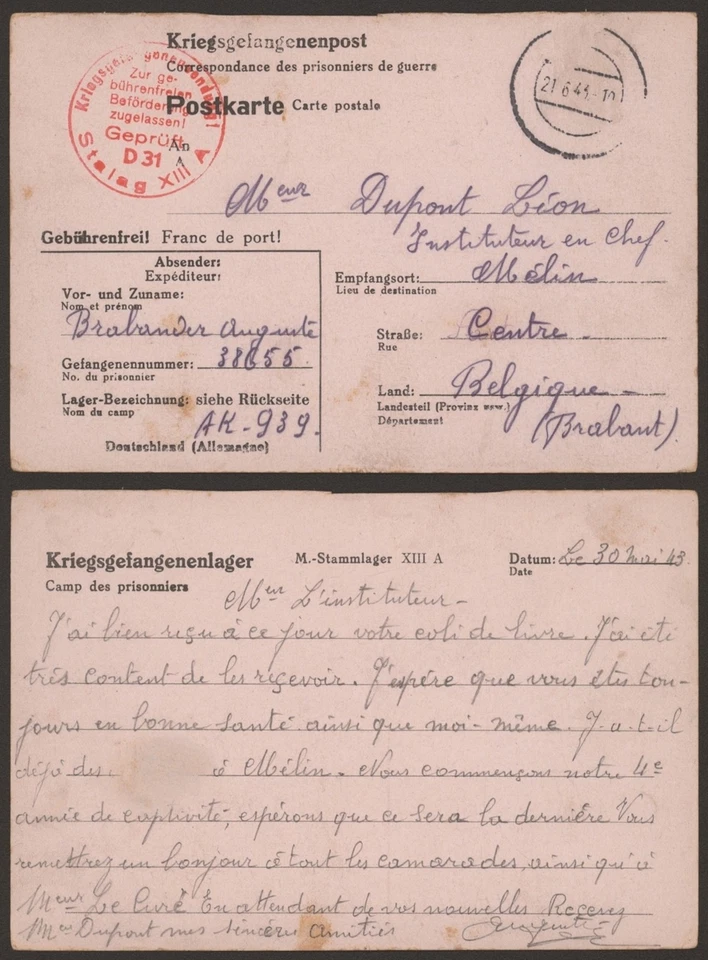 Kriegsgefangenenpost
Correspondance des prisonniers de guerre
Postkarte Carte postale
Kriegsgefangenensendung!
Zur ge-
bührenfreien
Beförderung
zugelassen!
Geprüft
D 31
Stalag XIII A
21.6.43.-10
An
A
Meur Dupont Léon
Instituteur en Chef.
Gebührenfrei! Franc de port!
Absender:
Expéditeur:
Vor- und Zuname:
Nom et prénom
Brabander Auguste
Gefangenennummer: 38655.
No. du prisonnier
Lager-Bezeichnung: siehe Rückseite
Nom du camp
AK-939.
Deutschland (Allemagne)
Empfangsort: Mélin
Lieu de destination
Straße: Centre
Rue
Land: Belgique
Landesteil (Provinz usw.)
Département
(Brabant)
Kriegsgefangenenlager M.-Stammlager XIII A Datum: Le 30 Mai 43
Camp des prisonniers Date
Meur L'instituteur -
J'ai bien reçu à ce jour votre coli de livre. J'ai été
très content de les reçevoir. J'espère que vous etes tou-
jours en bonne santé ainsi que moi-même. J-a-t-il
déjà des à Mélin. Nous commençons notre 4e
année de captivité, espérons que ce sera la dernière Vous
remettrez un bonjour à tout les camarades, ainsi qu'à
Meur Le Curé En attendant de vos nouvelles Recevez
Meur Dupont mes sincères amitiés Auguste